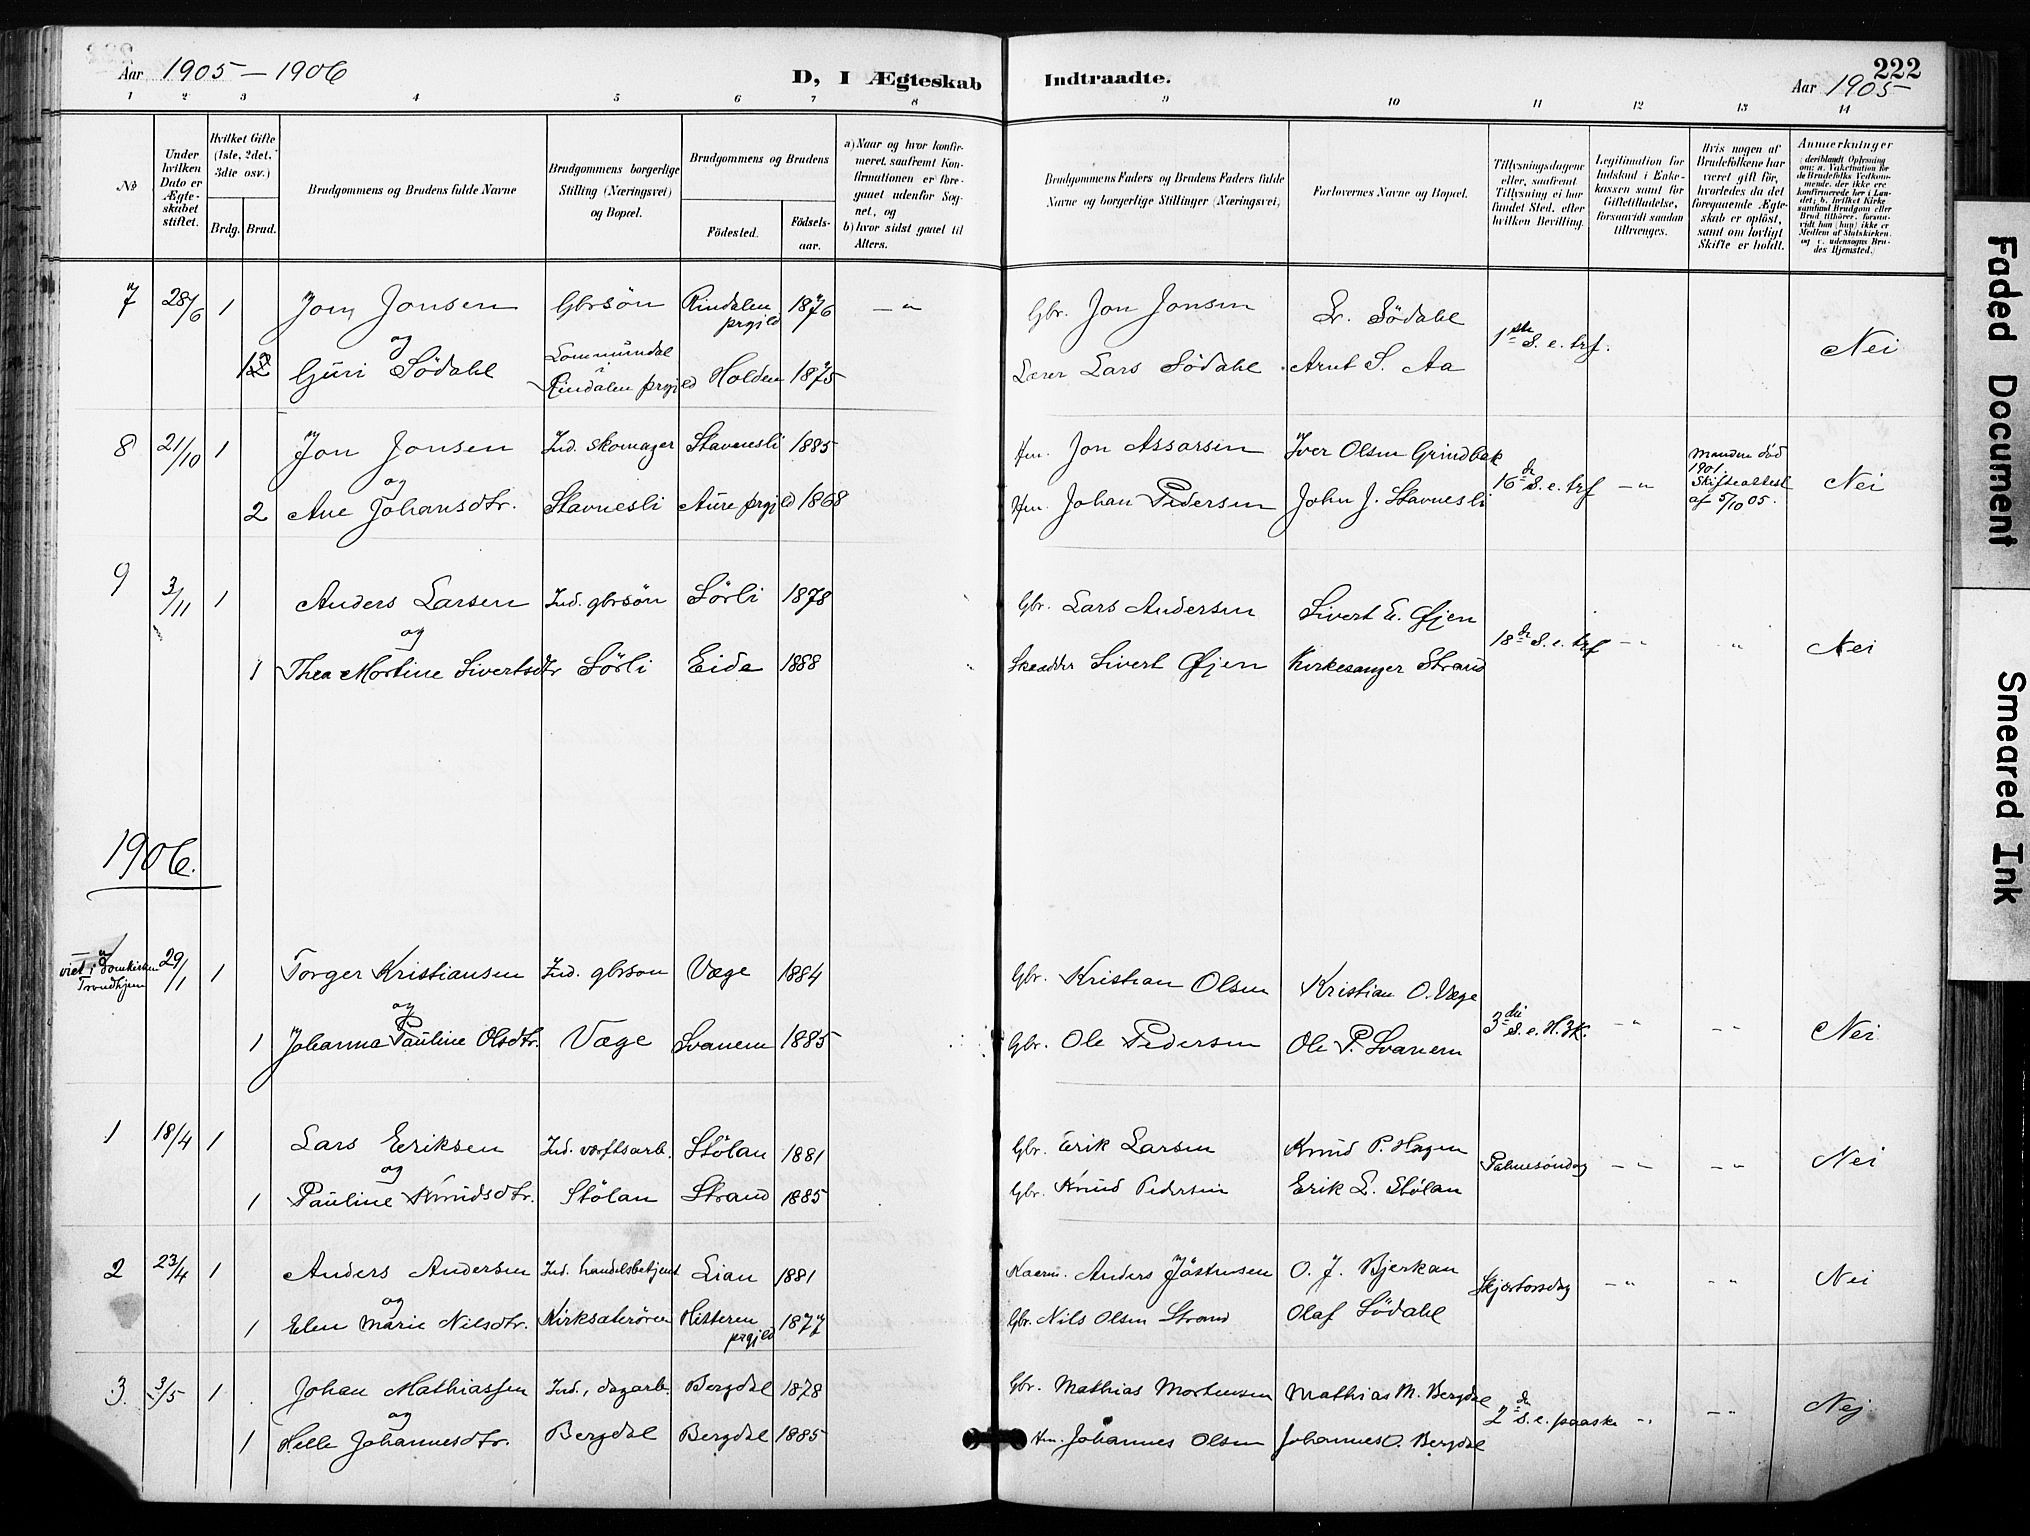 Aar 1905 – 1906
D, I Ægteskab
Indtraadte.
222
Aar 1905
1 2 3 4 5 6 7 8 9 10 11 12 13 14
No
Under hvilken Dato er Ægteskabet stiftet.
Hvilket Gifte (1ste, 2det, 3die osv.)
Brdg. Brud.
Brudgommens og Brudens fulde Navne
Brudgommens borgerlige Stilling (Næringsvei) og Bopæl.
Brudgommens og Brudens
Fødested.
Fødsels-aar.
a) Naar og hvor konfirmeret, saafremt Konfirmationen er foregaaet udenfor Sognet, og
b) hvor sidst gaaet til Alters.
Brudgommens Faders og Brudens Faders fulde Navne og borgerlige Stillinger (Næringsvei)
Forlovernes Navne og Bopæl.
Tillysningsdagene eller, saafremt Tillysning ei har fundet Sted, efter hvilken Bevilling.
Legitimation for Indskud i Enkekassen samt for Giftetilladelse, forsaavidt saadan tiltrænges.
Hvis nogen af Brudefolkene har været gift før, hvorledes da det foregaaende Ægteskab er opløst, samt om lovligt Skifte er holdt.
Anmerkninger
7 28/6 1 Jon Jonsen Gbrsön Rindalen prgjld 1876 – " Gbr. Jon Jonsen Lr. Södahl 1ste S. e. trf. Nei
og
Guri Södahl Lommundal i Rindalen prgjld Holden 1875 Lærer Lars Södahl Arnt S. Aa
8 21/10 1 Jon Jonsen Ind. skomager Stavnesli 1885 Hm. Jon Assarsen Iver Olsen Grindbak 16de S. e. trf – " Manden död 1901. Skifteattest af 5/10 05. Nei
og
2 Ane Johansdtr. Stavnesli Aure prgjld 1868 Hm. Johan Pedersen John J. Stavnesli
9 3/11 1 Anders Larsen Ind. gbrsön Sörli 1878 Gbr. Lars Andersen Sivert E. Øjen 18de S. e. trf – " " Nei
og
1 Thea Martine Sivertsdtr Sörli Eide 1888 Skrædder Sivert Øjen Kirkesanger Strand
1906.
viet i Domkirken Trondhjem 29/1 1 Torger Kristiansen Ind. gbrsøn Væge 1884 Gbr. Kristian Olsen Kristian O. Væge 3die S. e. H. 3K. – " – " Nei
og
1 Johanna Pauline Olsdtr. Væge Svanem 1885 Gbr. Ole Pedersen Ole P. Svanem
1 18/4 1 Lars Eriksen Ind. værftsarb. Stölan 1881 Gbr. Erik Larsen Knud P. Hagen Palmesöndag – " – " Nei
og
1 Pauline Knudsdtr. Stölan Strand 1885 Gbr. Knud Pedersen Erik L. Stölan
2 23/4 1 Anders Andersen Ind. handelsbetjent Lian 1881 Anders Jöstensen O. J. Bjerkan Skjærtorsdag – " – " Nei
og
1 Elen Marie Nilsdtr. Kirksæterören Hitteren prgjld 1877 Gbr. Nils Olsen Strand Olaf Södahl
3 3/5 1 Johan Mathiassen Ind., dagarb. Bergdal 1878 Gbr. Mathias Mortensen Mathias M. Bergdal 2den S. e. paaske " – " Nej
og
1 Helle Johannesdtr. Bergdal Bergdal 1885 Hm. Johannes Olsen Johannes O. Bergdal
Faded Document
Smeared Ink